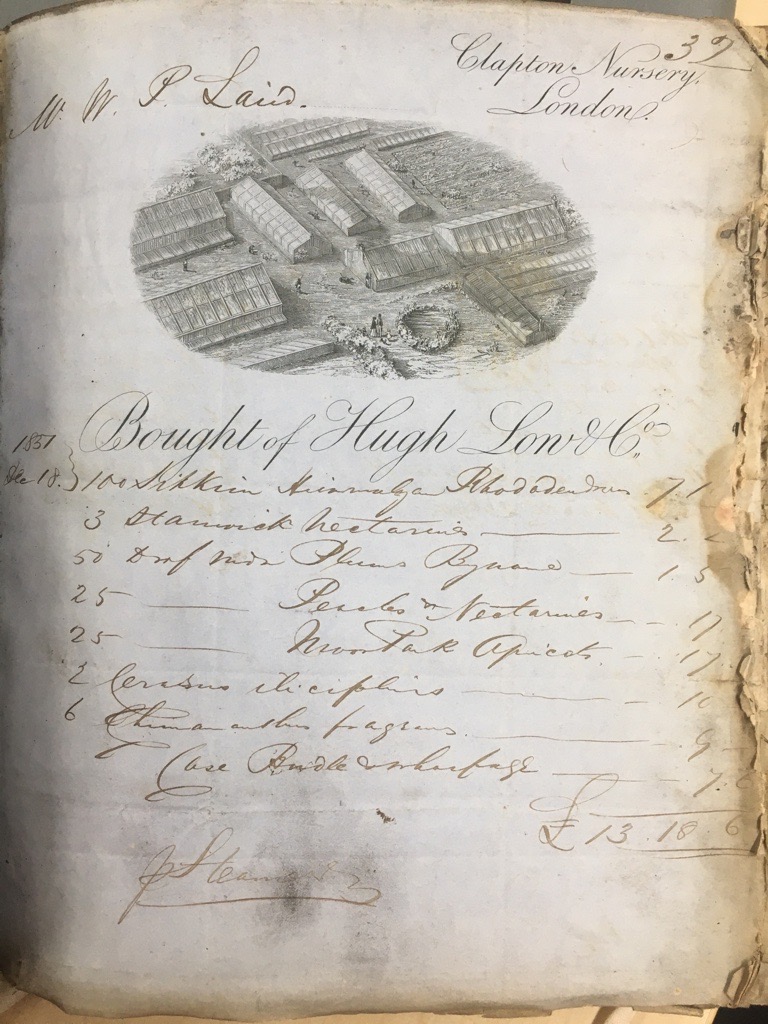 39
Clapton Nursery,
London.
Mr. W. P. Laird.
Bought of Hugh Low & Co.
1851
Dec 18. } 100 Sikkim Himmalyan Rhododendrons 7.1
3 Stanwick Nectarines — 2.
50 Drf Plums — 1. 5
25 — Peaches & Nectarines — 17
25 — Moor Park Apricots. — 17.
2 Cerasus ilicifolius — 10
6 Chimonanthus fragrans. — 9 -
Case Bundle & wharfage — 7.6
£ 13. 18. 6